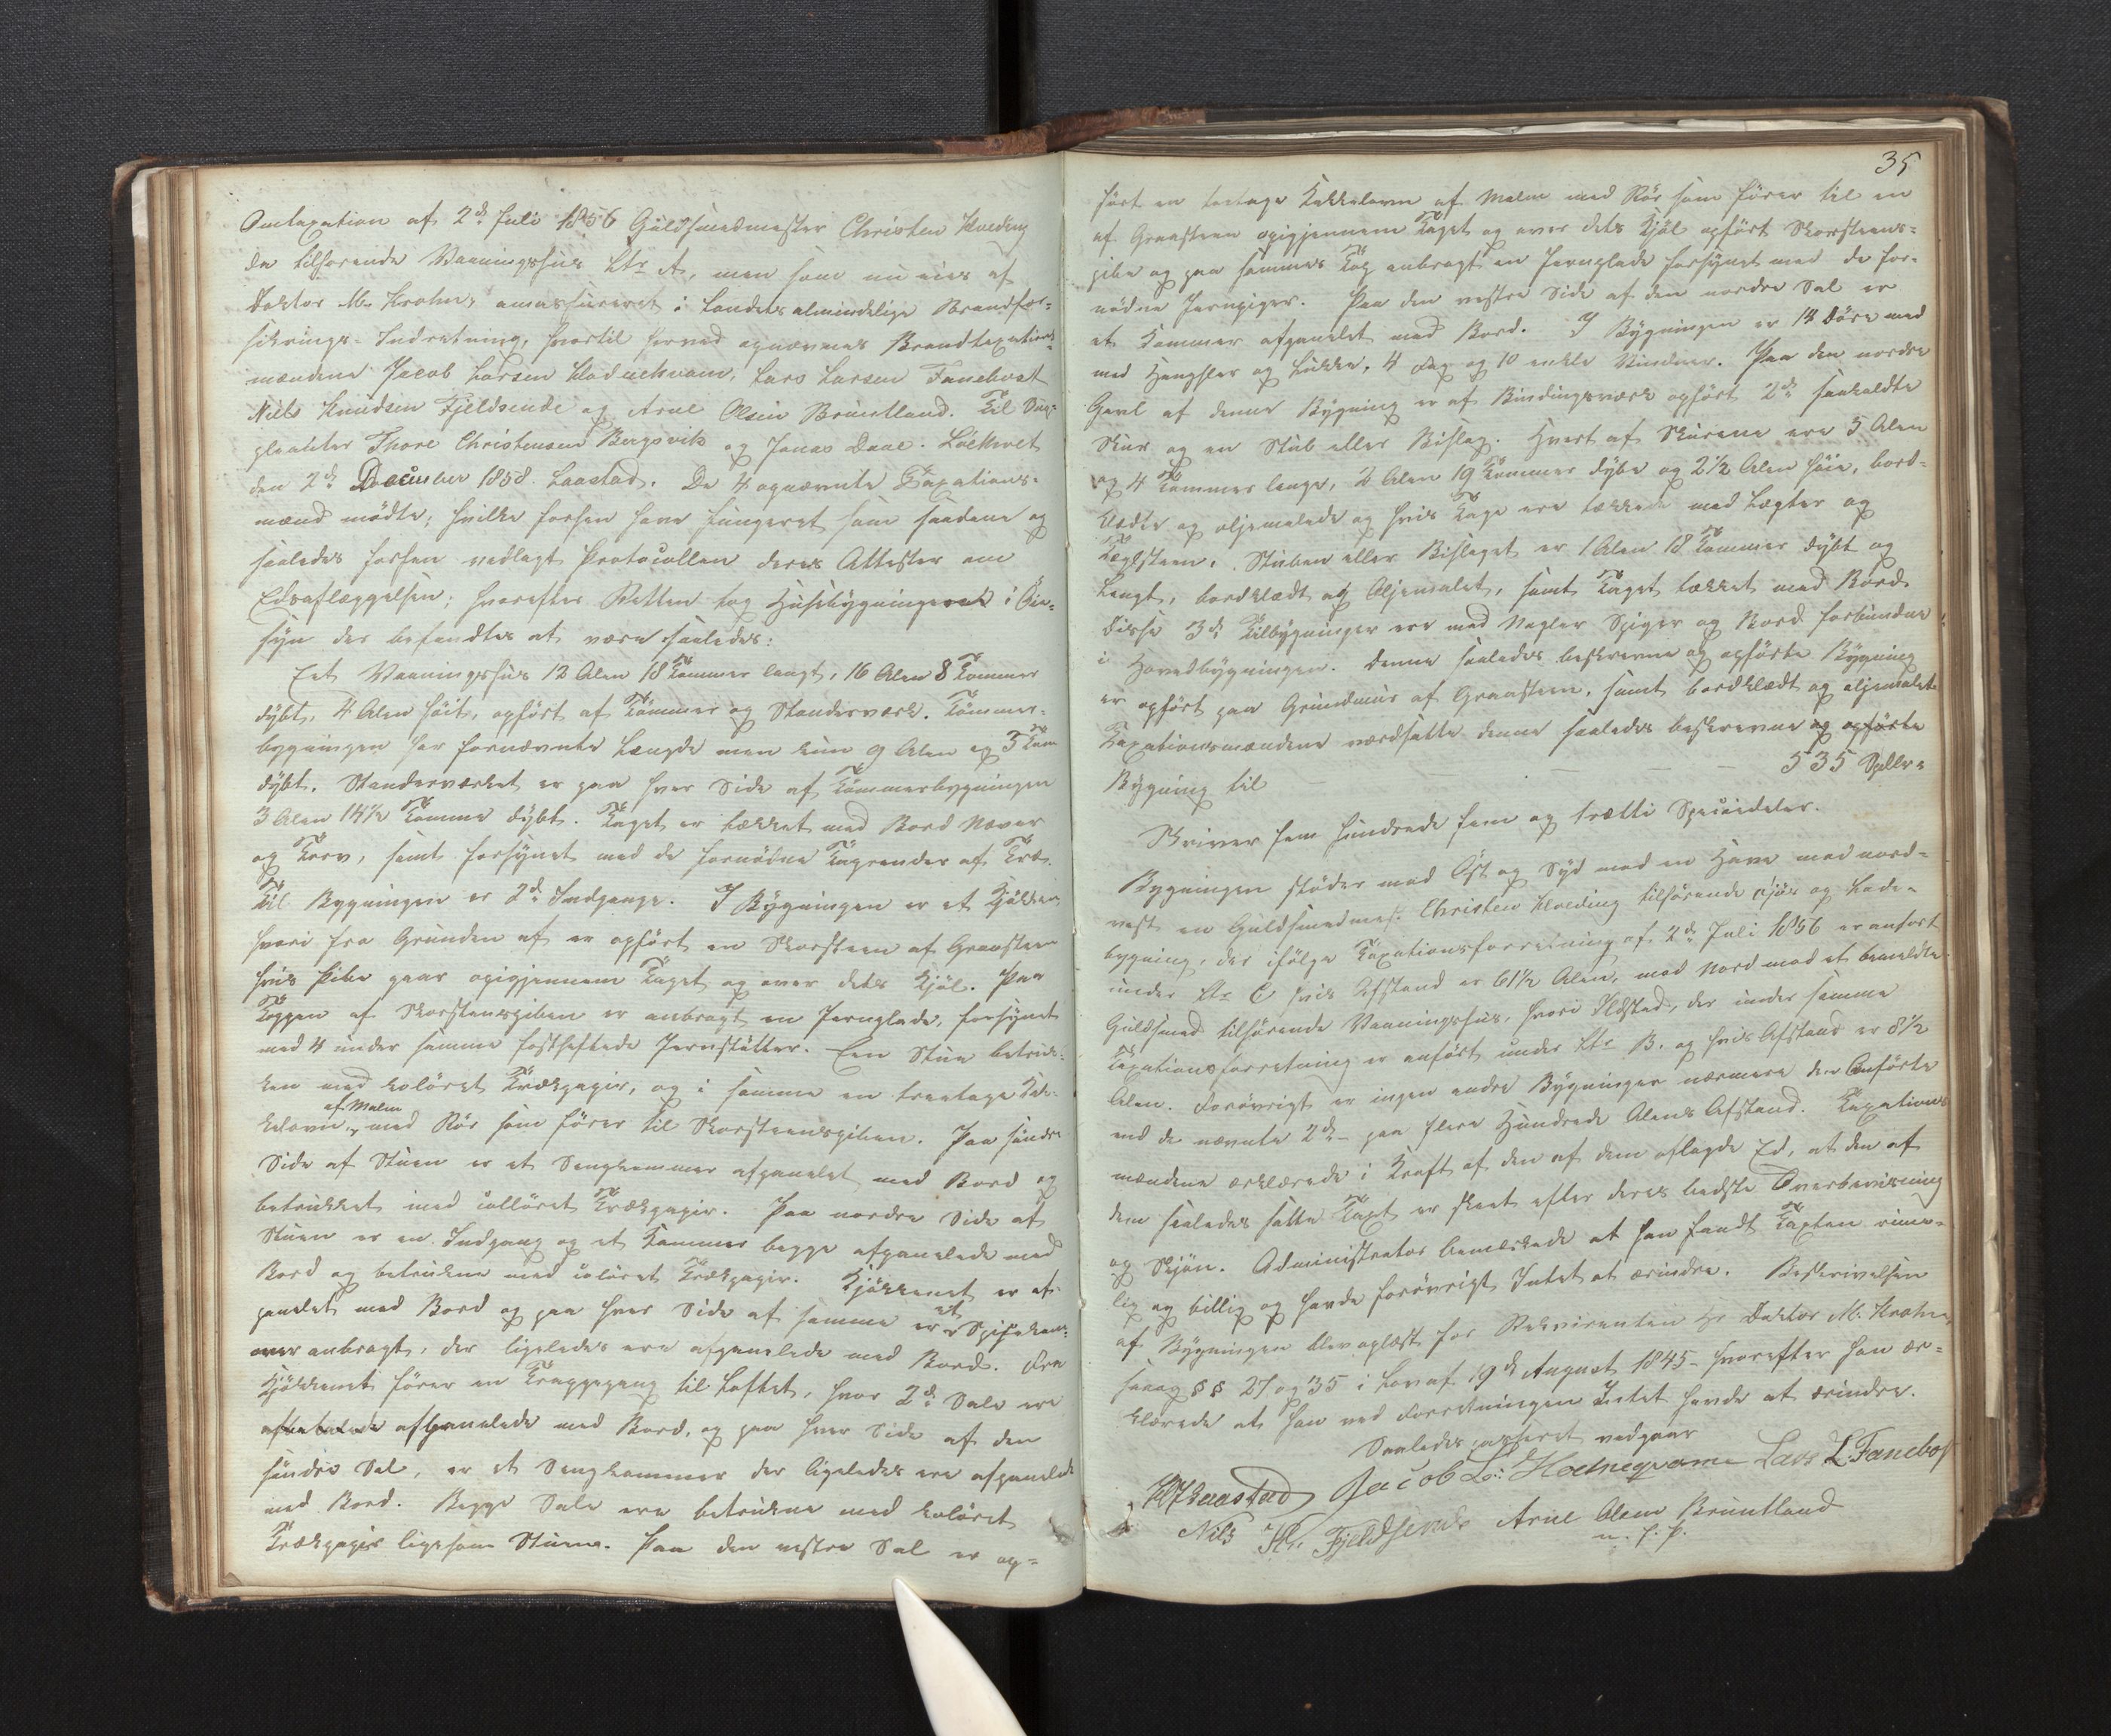 Omtaxation af 2d Juli 1856 Guldsmedmester Christen Kolding
da tilhørende Vaaningshus Ltr A, men som nu eies af
Doktor M. Krohn, assureret i Landets almindelige Brandfor-
sikrings-Indretning, hvortil herved opnævnes Brandtaxations-
mændene Jacob Larsen Hodnekvam, Lars Larsen Fanebost
Niels Knudsen Fjeldsende og Arne Olsen Bruntland. Til
Thore Christensen Bergsvik og Jonas Daae. Leekvet
den 2d December 1858. Laastad. De 4 opnævnte Taxations-
mænd mødte, hvilke forhen have fungeret som saadane og
saaledes forhen vedlagt Protocollen deres Attester om
Edsaflæggelsen; hvorefter Retten tog Husebygningerne i Øie-
syn der befandtes at være saaledes:
Eet Vaaningshus 12 Alen 18 Tommer langt, 16 Alen 8 Tommer
dybt, 4 Alen høit, opført af Tømmer og Standerværk. Tømmer-
bygningen har fornævnte Længde men kun 9 Alen og 3 Tom
dybt. Standerværket er paa hver Side af Tømmerbygningen
3 Alen 14½ Tomme dybt. Taget er tækket med Bord Næver
og Torv, samt forsynet med de fornødne Tagrender af Træ.
Til Bygningen er 2de Indgange. I Bygningen er et Kjøkken
hvori fra Grunden af er opført en Skorsteen af Graasteen
hvis Pibe gaar opigjennem Taget og over dets Kjøl. Paa
Toppen af Skorstenspiben er anbragt en Jernplade, forsynet
med 4 under samme fastheftede Jernstøtter. Een Stue betruk-
ken med koløret Trækpapir, og i samme en treetages Kak-
kelovn, af Malm med Rør som fører til Skorsteenspiben. Paa søndre
Side af Stuen er et Sengkammer afpanelet med Bord og
betrukket med colløret Trækpapir. Paa nordre Side af
Stuen er en Indgang og et Kammer begge afpanelede med
Bord og betrukne med coløret Trækpapir. Kjøkkenet er af-
panelet med Bord og paa hver Side af samme er et Spisekam-
mer anbragt, der ligeledes ere afpanelede med Bord. Fra
Kjøkkenet fører en Trappegang til Loftet, hvor 2de Sale ere
afpanelede med Bord, og paa hver Side af den
søndre Sal, er et Sengkammer der ligeledes ere afpanelede
med Bord. Begge Sale ere betrukne med koløret
Trækpapir ligesom Stuene. Paa den vestre Sal er op-
35
ført en toetages Kakkelovn af Malm med Rør som fører til en
af Graasteen opigjennem Taget og over dets Kjøl opført Skorsteens-
pibe og paa sammes Top anbragt en Jernplade forsynet med de for-
nødne Jernpiger. Paa den vestre Side af den nordre Sal er
et Kammer afpanelet med Bord. I Bygningen er 14 Døre med
med Hængsler og Lukker, 4 Fag og 10 enkle Vinduer. Paa den nordre
Gavl af denne Bygning er af Bindingsværk opført 2de saakaldte
Skur og en Stub eller Bislag. Hvert af Skurene ere 3 Alen
og 4 Tommer lange, 2 Alen 19 Tommer dybe og 2½ Alen høie, bord-
klædte og oljemalede og hvis Tage ere tækkede med Lægter og
Taglsteen. Stuben eller Bislaget er 1 Alen 18 Tommer dybt og
Langt, bordklædt og Oljemalet, samt Taget tækket med Bord.
Disse 3de Tilbygninger ere med Nagler Spiger og Bord forbundne
i Hovedbygningen. Denne saaledes beskrevne og opførte Bygning
er opført paa Grundmur af Graasteen, samt bordklædt og oljemalet.
Taxationsmændene værdsatte denne saaledes beskrevne og opførte
Bygning til — — — — 535 Spdlr
Skriver fem hundrede fem og trætti Speciedaler.
Bygningen støder mod Øst og Syd med en Have mod nord-
vest en Guldsmedmes: Christen Kolding tilhørende Sjøs og Lade-
bygning, der ifølge Taxationsforretning af 2d Juli 1856 er anført
under Ltr C hvis Afstand er 61½ Alen, mod Nord mod et bemeldte
Guldsmed tilhørende Vaaningshus, hvori Ildsted, der under samme
Taxationsforretning er anført under Ltr B. og hvis Afstand er 8½
Alen. Forøvrigt er ingen andre Bygninger nærmere den Anførte
end de nævnte 2de paa flere Hundrede Alens Afstand. Taxations
mændene erklærede i Kraft af den af dem aflagde Ed, at den af
dem saaledes satte Taxt er skeet efter deres bedste Overbeviisning
og Skjøn. Administrator bemærkede at han fandt Taxten rime-
lig og billig og havde forøvrigt Intet at erindre. Beskrivelsen
af Bygningen blev oplæst for Rekvirenten Hr Doktor M. Krohn,
saavg §§ 27 og 35 i Lov af 19d August 1845 hvorefter han er-
klærede at han ved Forretningen Intet havde at erindre.
Saaledes passeret vedgaar
Laastad Jacob L: Hodneqvame Lars L. Fanebost
Nils Kn. Fjeldsende Arne Olsen Bruntland
m. f. P.